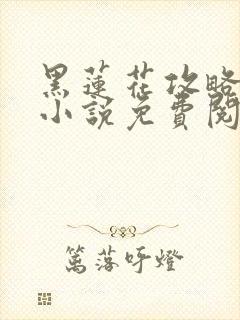 黑蓮花攻略
小說免費閱
篤落吁燈